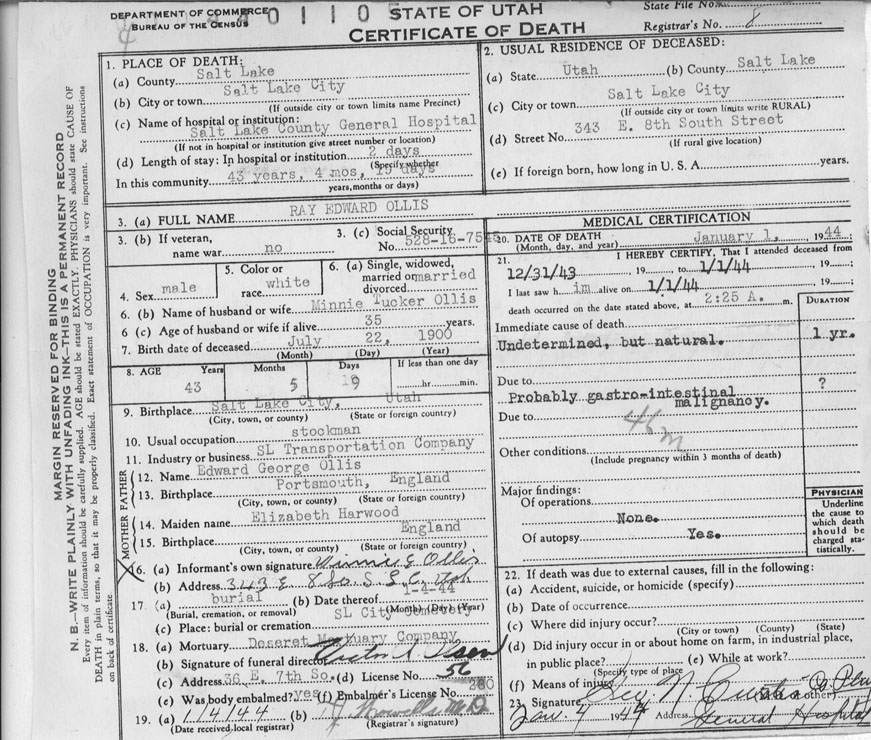 DEPARTMENT OF COMMERCE
BUREAU OF THE CENSUS
0 1 1 0
STATE OF UTAH
CERTIFICATE OF DEATH
State File No.
Registrar's No. 8
MARGIN RESERVED FOR BINDING
N. B.—WRITE PLAINLY WITH UNFADING INK—THIS IS A PERMANENT RECORD
Every item of information should be carefully supplied. AGE should be stated EXACTLY. PHYSICIANS should state CAUSE OF
DEATH in plain terms, so that it may be properly classified. Exact statement of OCCUPATION is very important. See instructions
on back of certificate.
1. PLACE OF DEATH:
(a) County Salt Lake
(b) City or town Salt Lake City
(If outside city or town limits name Precinct)
(c) Name of hospital or institution:
Salt Lake County General Hospital
(If not in hospital or institution give street number or location)
(d) Length of stay: In hospital or institution 2 days
(Specify whether
In this community 43 years, 4 mos, days
years, months or days)
2. USUAL RESIDENCE OF DECEASED:
(a) State Utah (b) County Salt Lake
(c) City or town Salt Lake City
(If outside city or town limits write RURAL)
(d) Street No. 343 E. 8th South Street
(If rural give location)
(e) If foreign born, how long in U. S. A. years.
3. (a) FULL NAME RAY EDWARD OLLIS
3. (b) If veteran,
name war no
3. (c) Social Security
No. 528-16-7545
4. Sex male
5. Color or
race white
6. (a) Single, widowed,
married or married
divorced
6. (b) Name of husband or wife Minnie Tucker Ollis
6 (c) Age of husband or wife if alive 35 years.
7. Birth date of deceased July 22, 1900
(Month) (Day) (Year)
8. AGE Years Months Days If less than one day
43 5 9 hr. min.
9. Birthplace Salt Lake City, Utah
(City, town, or county) (State or foreign country)
10. Usual occupation stockman
11. Industry or business SL Transportation Company
FATHER
12. Name Edward George Ollis
13. Birthplace Portsmouth, England
(City, town, or county) (State or foreign country)
MOTHER
14. Maiden name Elizabeth Harwood
15. Birthplace England
(City, town, or county) (State or foreign country)
16. (a) Informant's own signature Ollis
(b) Address 343 E 8 So. S. L. C. Utah
17 (a) burial (b) Date thereof 1-4-44
(Burial, cremation, or removal) (Month) (Day) (Year)
(c) Place: burial or cremation SL City Cemetery
18. (a) Mortuary Deseret Mortuary Company
(b) Signature of funeral director
(c) Address 36 E. 7th So. (d) License No. 56
(e) Was body embalmed? yes (f) Embalmer's License No. 260
19. (a) 1/4/44 (b) M.D.
(Date received local registrar) (Registrar's signature)
MEDICAL CERTIFICATION
20. DATE OF DEATH January 1, 1944
(Month, day, and year)
21. I HEREBY CERTIFY, That I attended deceased from
12/31/43, 19 to 1/1/44, 19 ;
I last saw h im alive on 1/1/44, 19 ;
death occurred on the date stated above, at 2:25 A. m.
DURATION
Immediate cause of death
Undetermined, but natural. 1 yr.
Due to ?
Probably gastro-intestinal
malignancy.
Due to
46m
Other conditions
(Include pregnancy within 3 months of death)
Major findings:
Of operations
None.
Of autopsy Yes.
PHYSICIAN
Underline
the cause to
which death
should be
charged sta-
tistically.
22. If death was due to external causes, fill in the following:
(a) Accident, suicide, or homicide (specify)
(b) Date of occurrence
(c) Where did injury occur?
(City or town) (County) (State)
(d) Did injury occur in or about home on farm, in industrial place,
in public place? (e) While at work?
(Specify type of place
(f) Means of injury
23. Signature
Jan. 4 1944 Address General Hospital